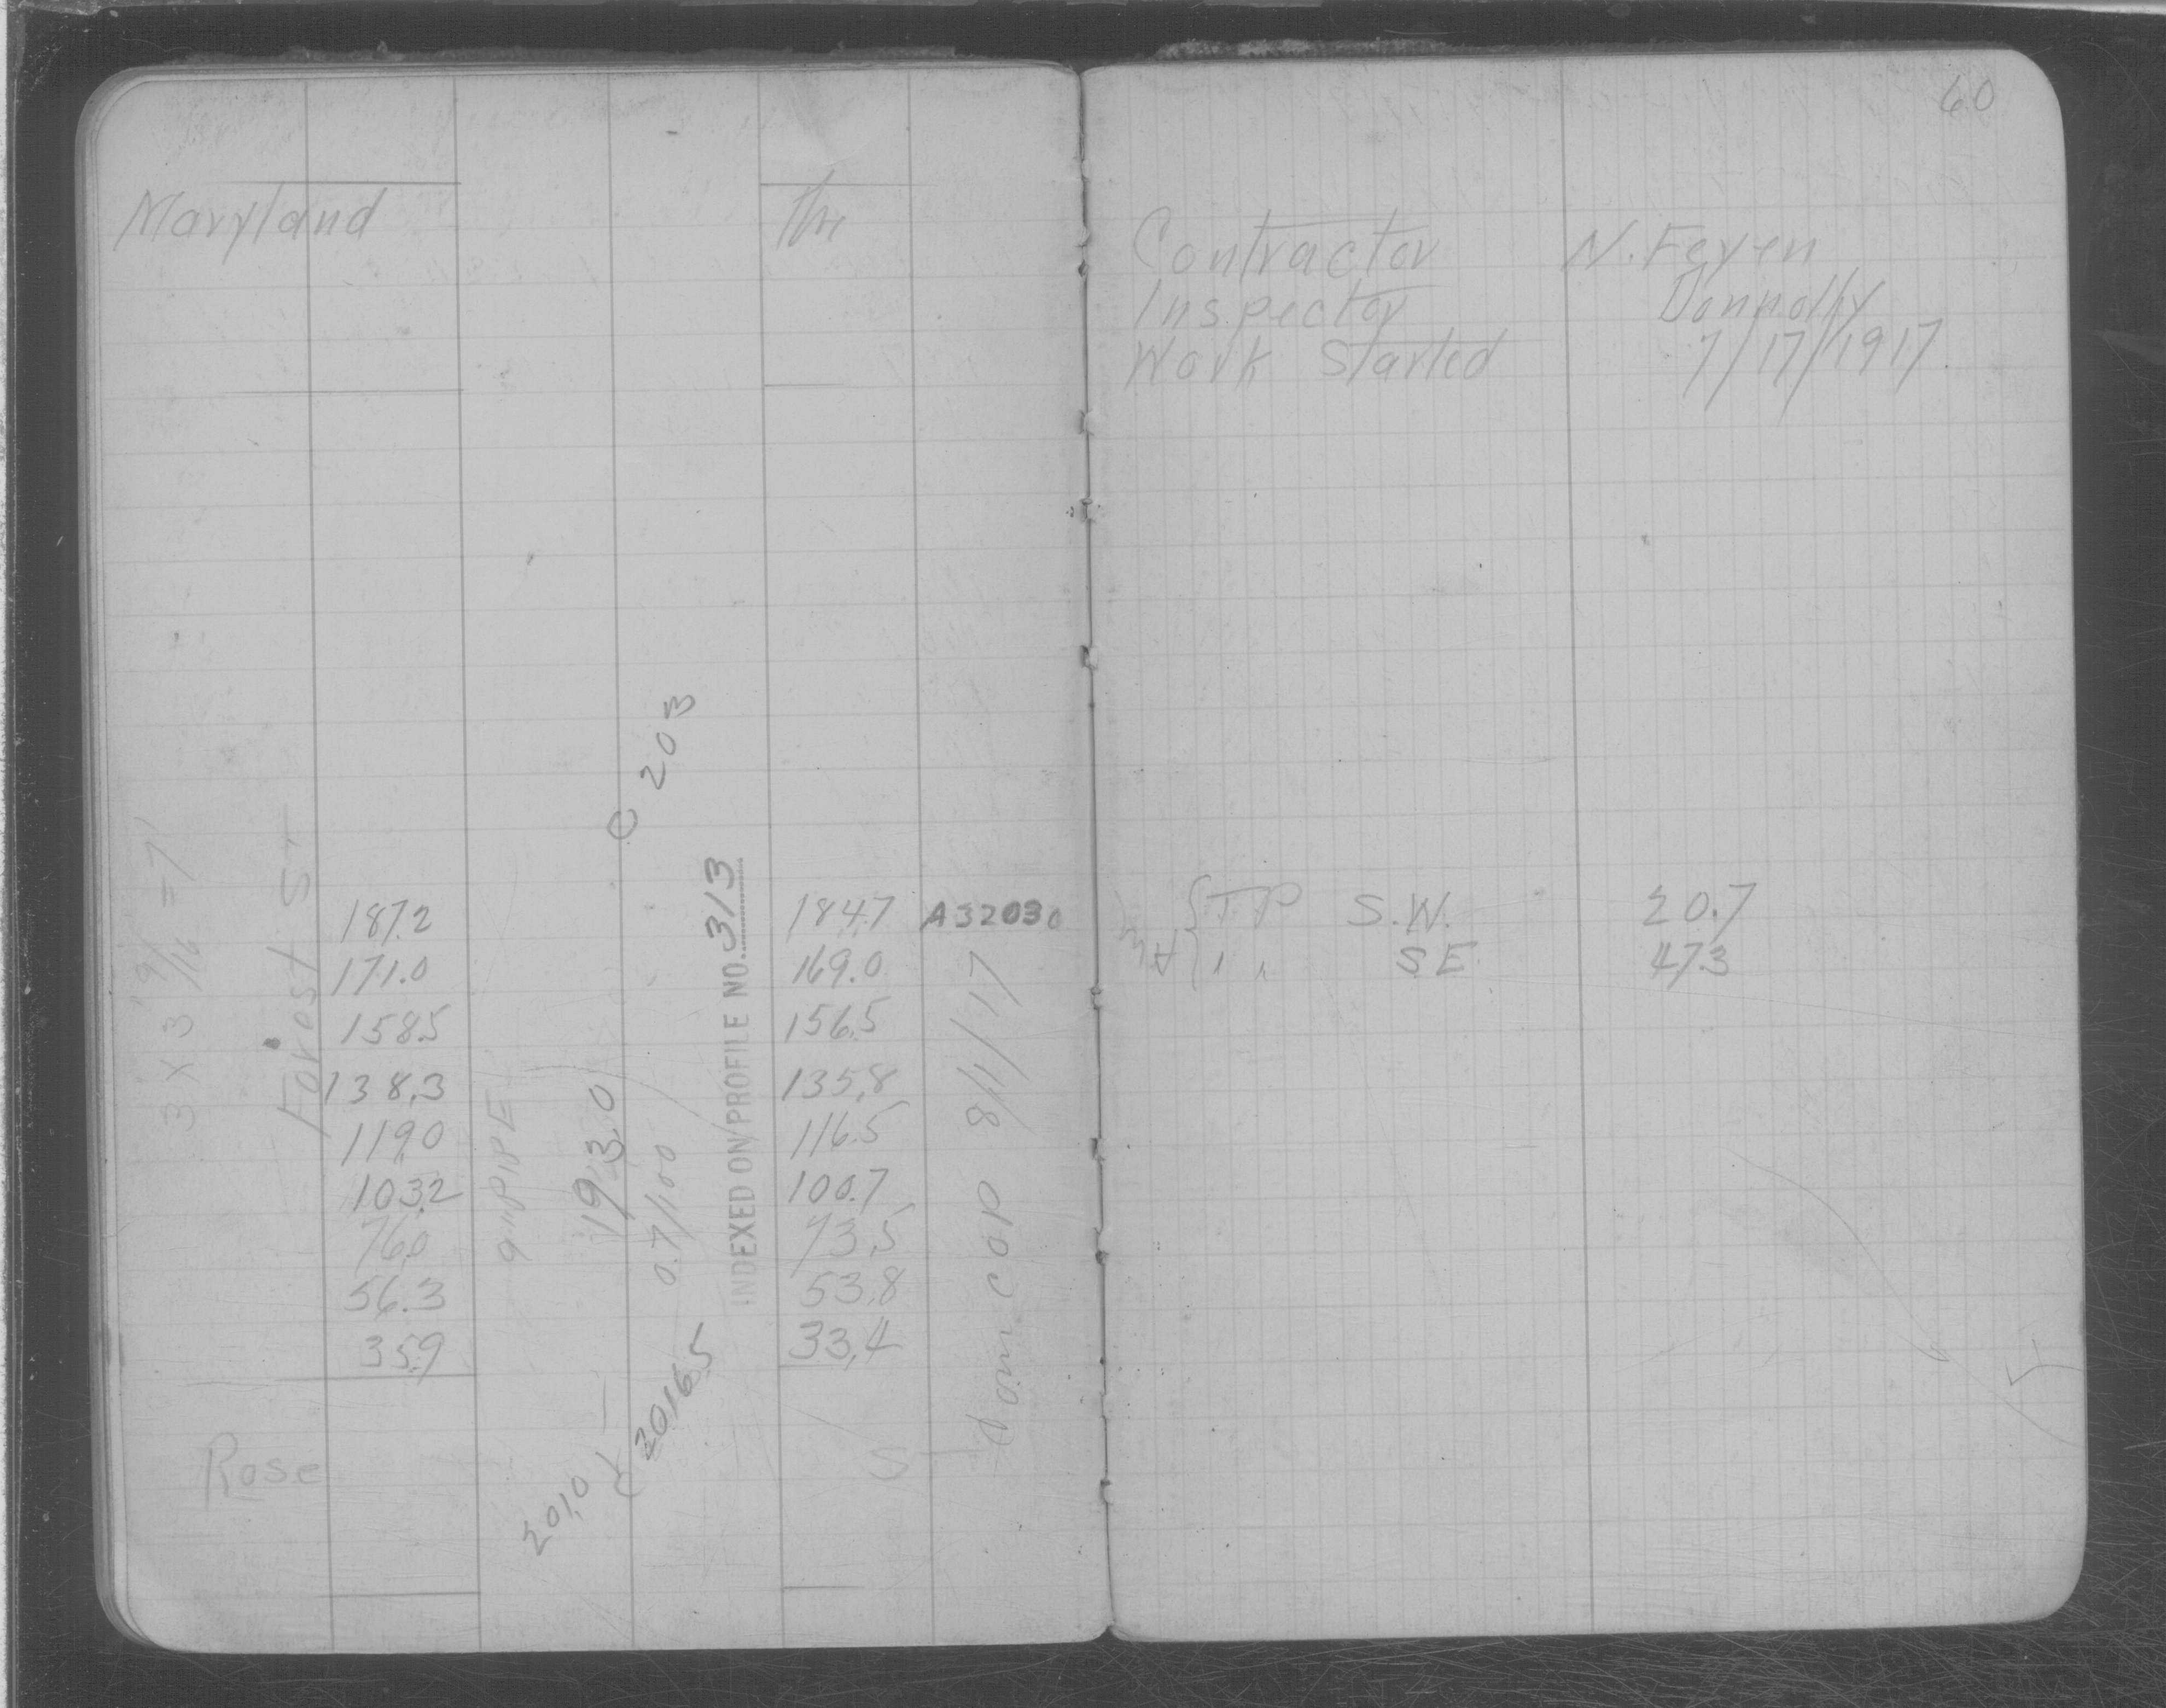 60
Maryland
Contractor N. Feyen
Inspector Donnolly
Work Started 7/17/1917
3 x 3 9/16 = 7'
Forost St
C 203
187.2 184.7 A32030
171.0 169.0
158.5 156.5
138.3 135.8
119.0 116.5
103.2 100.7
76.0 73.5
56.3 53.8
35.9 33.4
9" PIPE
193.0
0.7/100
INDEXED ON PROFILE NO. 313
8/1/17
201.0
C 20165
Rose
TP S.W. 20.7
" " S E 47.3